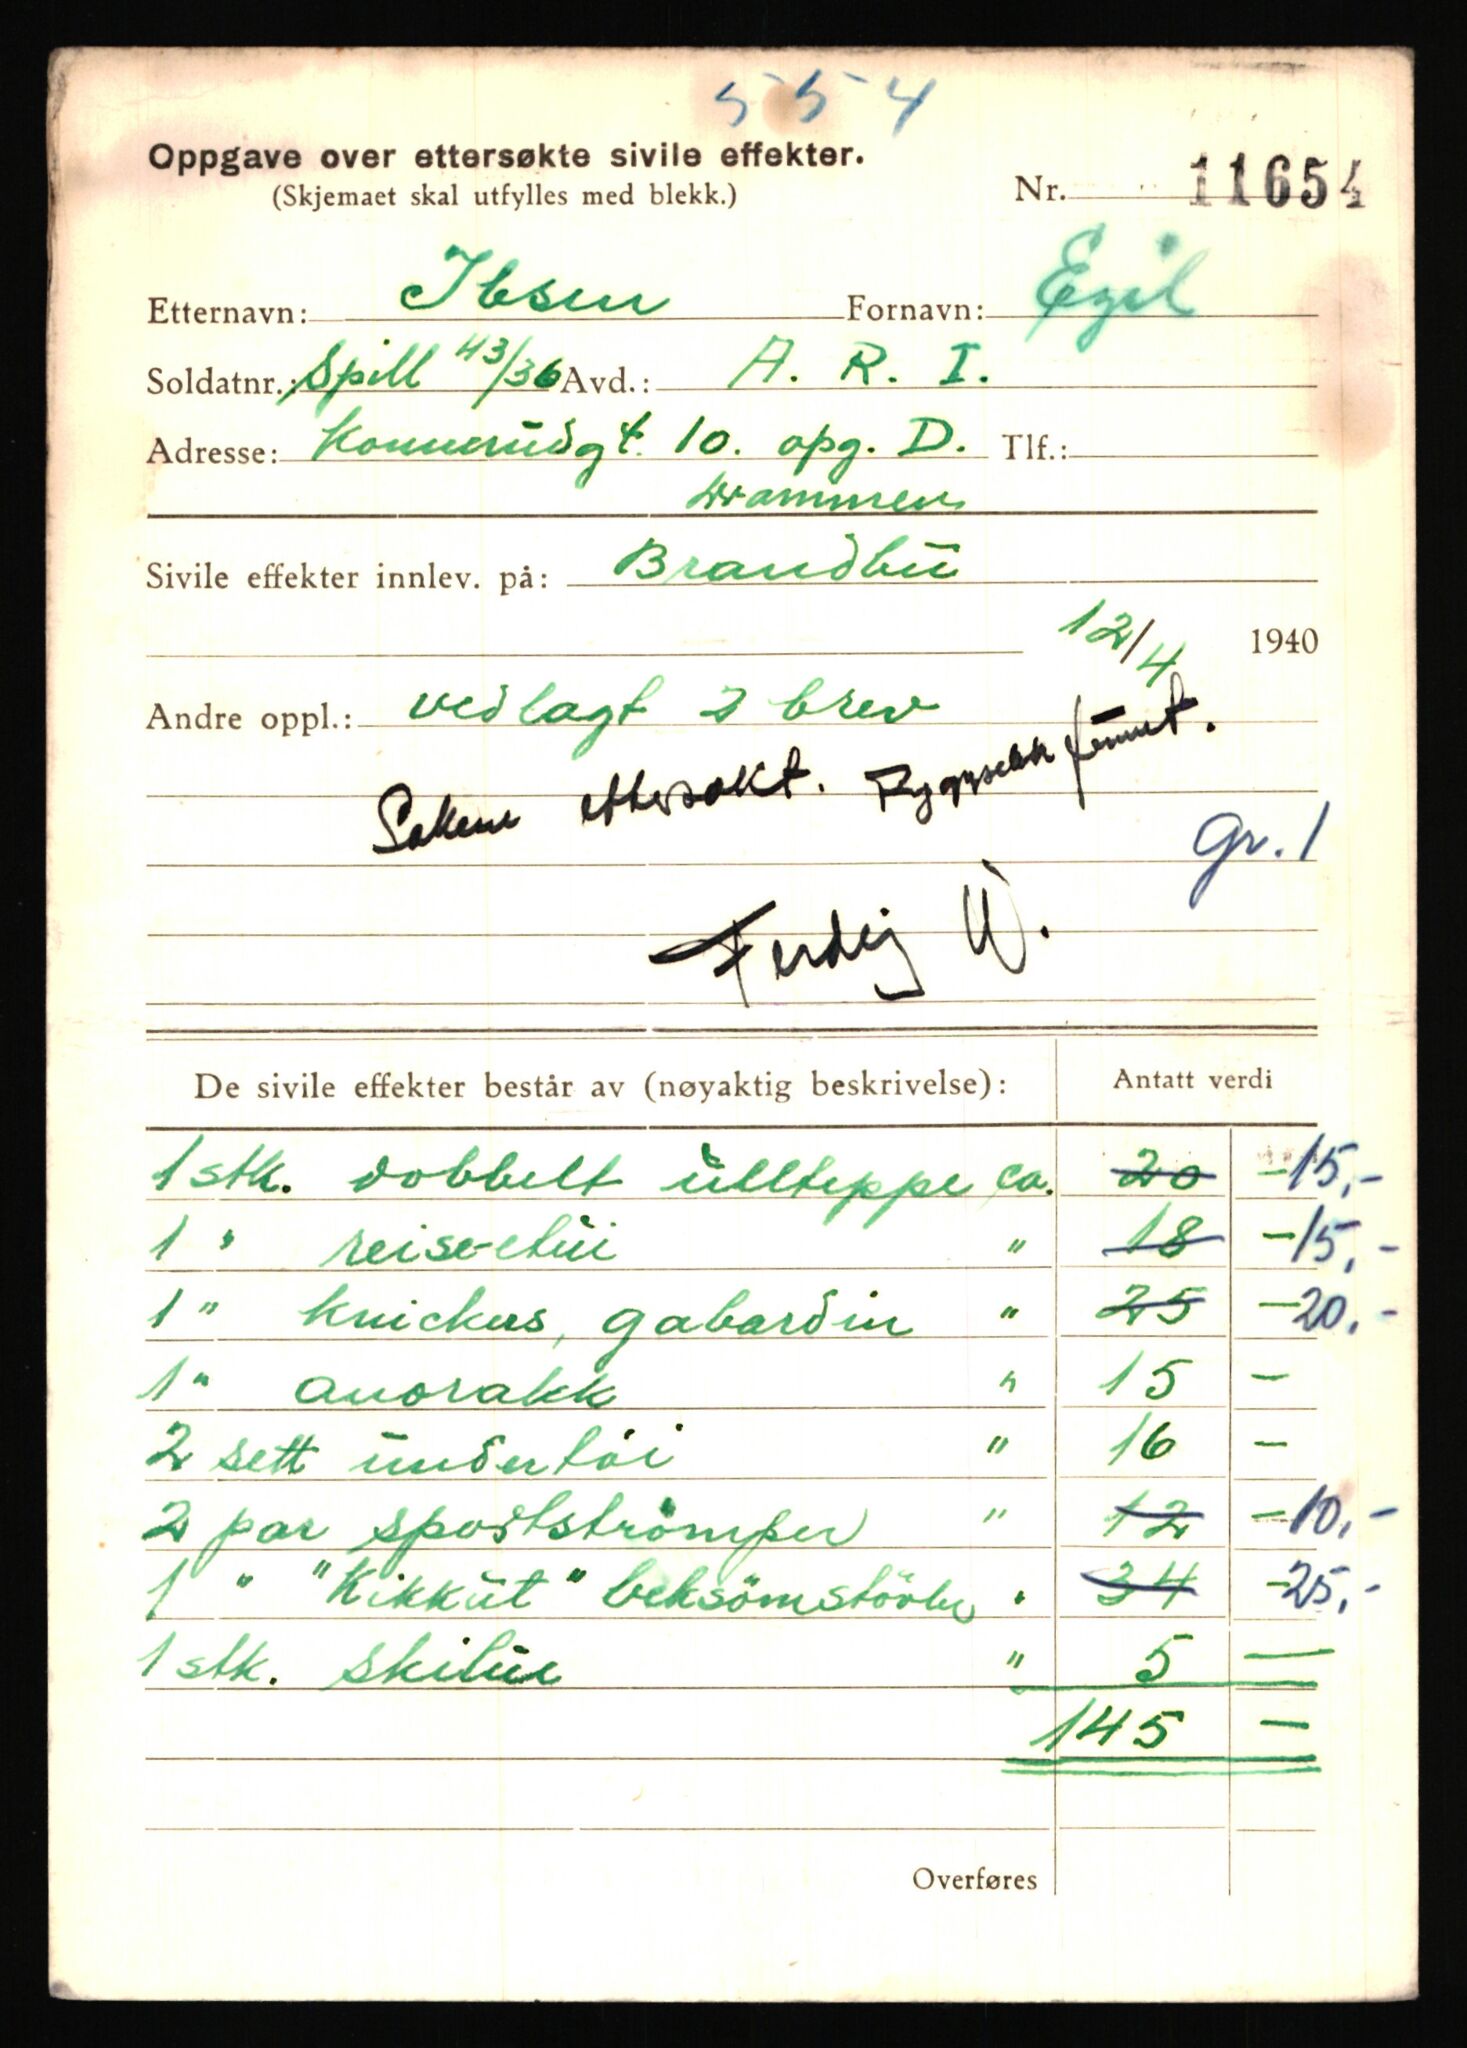 554
Oppgave over ettersøkte sivile effekter.
(Skjemaet skal utfylles med blekk.)
Nr. 11654
Etternavn: Ibsen Fornavn: Egil
Soldatnr.: Spill 43/36 Avd.: A. R. I.
Adresse: Konnerudgt. 10. opg. D. Tlf.:
Drammen
Sivile effekter innlev. på: Brandbu
12/4 1940
Andre oppl.: vedlagt 2 brev
Sakene ettersøkt. Ryggsekk funnet.
Gr. 1
Ferdig W.
De sivile effekter består av (nøyaktig beskrivelse): Antatt verdi
1 stk. dobbelt ullteppe ca. 20 - 15,-
1 " reise-etui " 18 - 15,-
1 " knickers, gabardin " 25 - 20,-
1 " anorakk " 15 -
2 sett undertöi " 16 -
2 par sportströmper " 12 - 10,-
1 " "Kikkut" beksömstövler " 34 - 25,-
1 stk. skilue " 5 -
145 -
Overføres